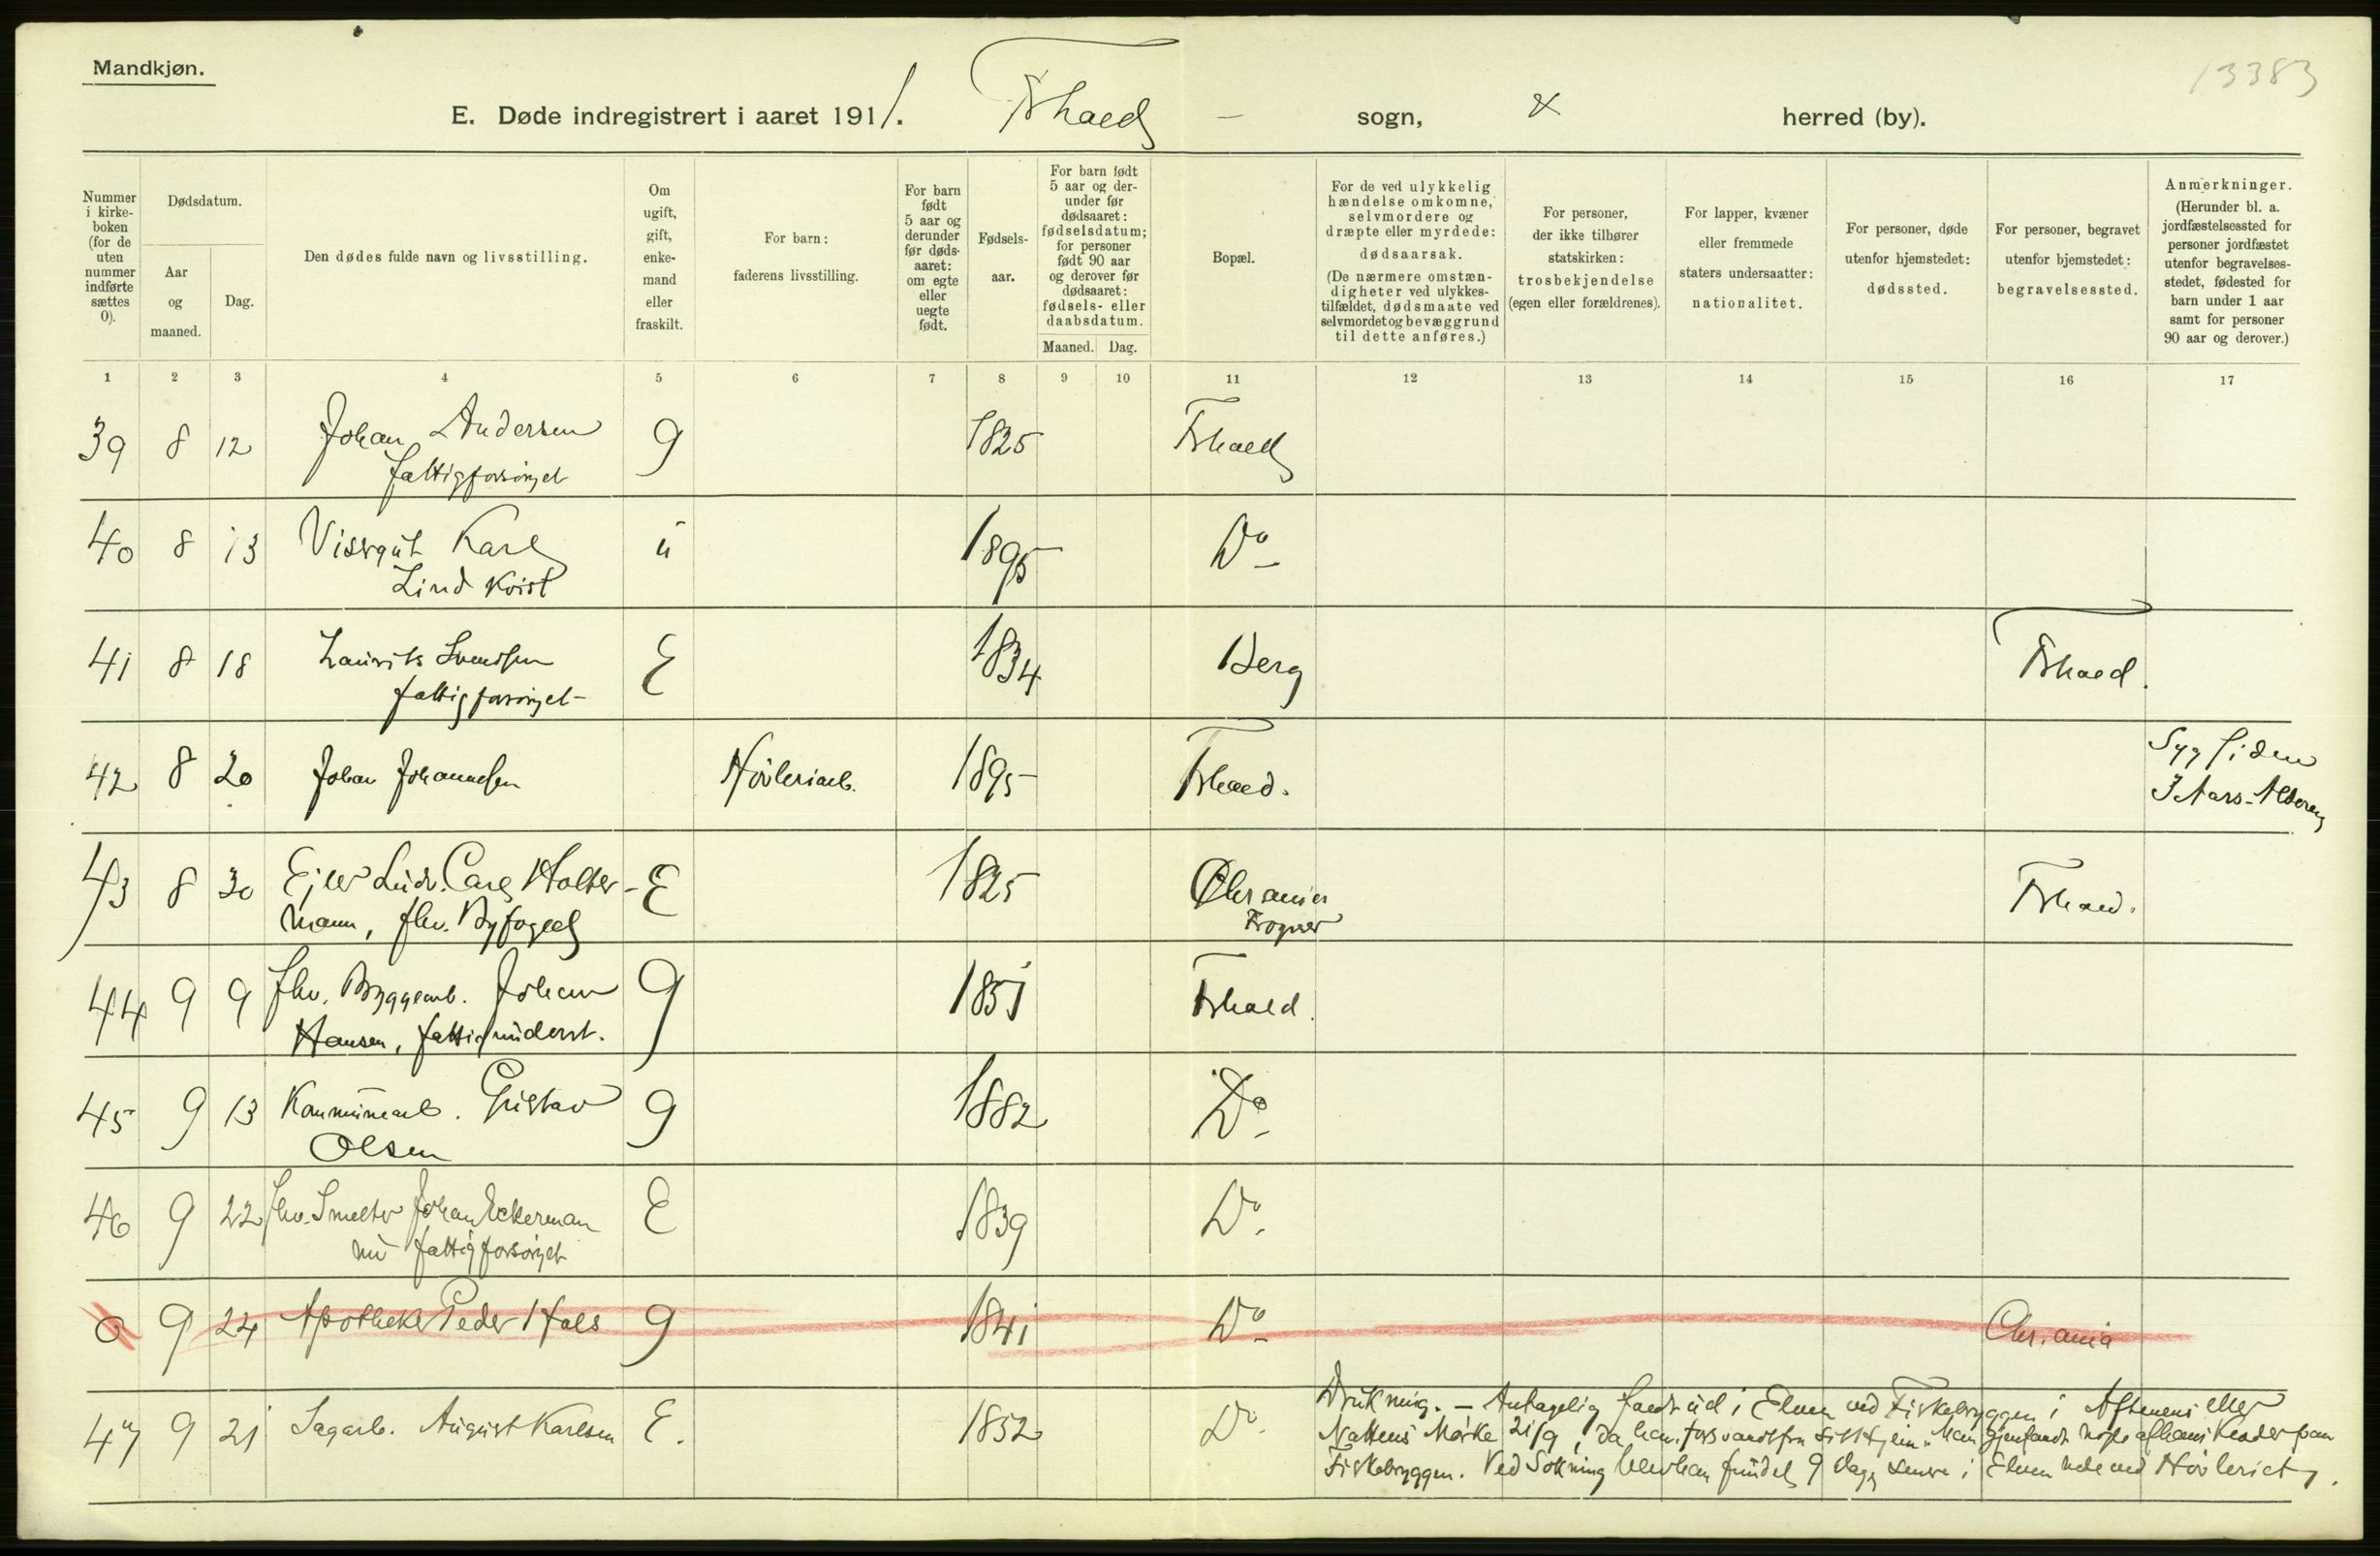 Mandkjøn.
13383
E. Døde indregistrert i aaret 1911. Frhald - sogn, herred (by).
Nummer i kirke-boken (for de uten nummer indførte sættes 0).
Dødsdatum.
Aar og maaned.
Dag.
Den dødes fulde navn og livsstilling.
Om ugift, gift, enke-mand eller fraskilt.
For barn: faderens livsstilling.
For barn født 5 aar og derunder før døds-aaret: om egte eller uegte født.
Fødsels-aar.
For barn født 5 aar og der-under før dødsaaret: fødselsdatum; for personer født 90 aar og derover før dødsaaret: fødsels- eller daabsdatum.
Maaned. Dag.
Bopæl.
For de ved ulykkelig hændelse omkomne, selvmordere og dræpte eller myrdede: dødsaarsak. (De nærmere omstæn-digheter ved ulykkes-tilfældet, dødsmaate ved selvmordet og bevæggrund til dette anføres.)
For personer, der ikke tilhører statskirken: trosbekjendelse (egen eller forældrenes).
For lapper, kvæner eller fremmede staters undersaatter: nationalitet.
For personer, døde utenfor hjemstedet: dødssted.
For personer, begravet utenfor hjemstedet: begravelsessted.
Anmerkninger. (Herunder bl. a. jordfæstelsessted for personer jordfæstet utenfor begravelses-stedet, fødested for barn under 1 aar samt for personer 90 aar og derover.)
1 2 3 4 5 6 7 8 9 10 11 12 13 14 15 16 17
39 8 12 Johan Andersen g 1825 Frhald
fattigforsörget
40 8 13 Karl u 1895 Do
Lind Kvist
41 8 18 Laurits Svendsen E 1834 Berg Frhald.
fattigforsörget
42 8 20 Johan Johannesen Hövleriarb. 1895 Frhald. Syg siden
3 Aars-Alderen
43 8 30 Ejler Ludv. Carl Holter- E 1825 Chrania Frhald.
mann, fhv. Byfoged Frogner
44 9 9 fhv. Byggearb. Johan g 1851 Frhald.
Hansen, fattigunderst.
45 9 13 Kommunearb. Gustav g 1882 Do
Olsen
46 9 22 fhv. Smelter Johan Eckerman E 1839 Do.
nu fattigforsörget
0 9 24 Apotheker Peder Hals g 1841 Do Chr.ania
47 9 21 Sagarb. August Karlsen E. 1852 Do. Drukning. - Antagelig faldt ud i Elven ved Fiskebryggen i Aftenens eller
Nattens Mørke 21/9, da han forsvandt fra sit Hjem. Man gjenfandt nogle af hans Klæder paa
Fiskebryggen. Ved Sökning blev han fundet 9 Dage senere i Elven nede ved Hövleriet.